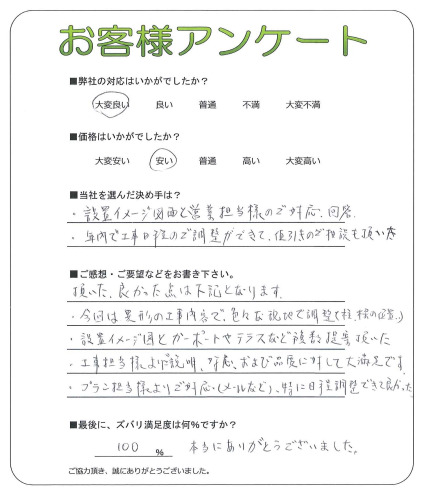 お客様アンケート
■弊社の対応はいかがでしたか？
大変良い 良い 普通 不満 大変不満
■価格はいかがでしたか？
大変安い 安い 普通 高い 大変高い
■当社を選んだ決め手は？
・設置イメージ図面と営業担当様のご対応、回答
・年内で工事日程のご調整ができて、値引点のご相談も頂いた
■ご感想・ご要望などをお書き下さい。
頂いた、良かった点は下記となります。
・今回は異形の工事内容で、色々な現地で調整
・設置イメージ図とカーポートやテラスなど複数提案頂いた
・工事担当様よりご説明、対応、および品質に対して大満足です。
・プラン担当様よりご対応(メールなど)、特に日程調整できて良かった。
■最後に、ズバリ満足度は何%ですか？
100 % 本当にありがとうございました。
ご協力頂き、誠にありがとうございました。